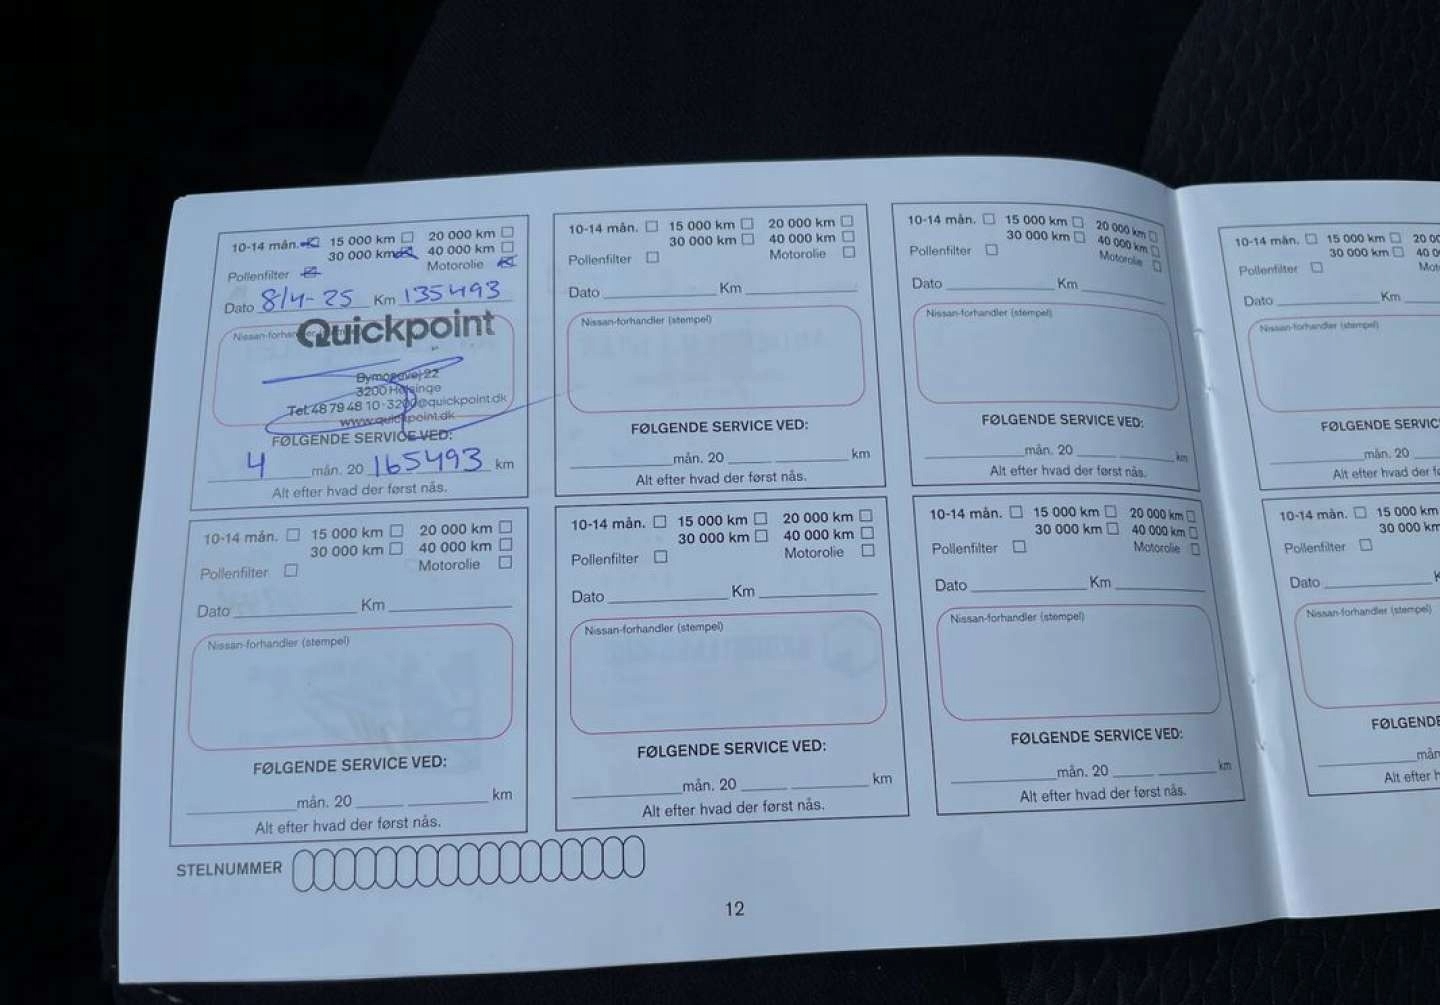 10-14 mån. 15 000 km 20 000 km
30 000 km 40 000 km
Pollenfilter Motorolie
Dato 8/4-25 Km 135493
Nissan-forhandler (stempel)
Quickpoint
Bymosevej 22
3200 Helsinge
Tel. 48 79 48 10 - 3200@quickpoint.dk
www.quickpoint.dk
FØLGENDE SERVICE VED:
4 mån. 20 165493 km
Alt efter hvad der først nås.
10-14 mån. 15 000 km 20 000 km
30 000 km 40 000 km
Pollenfilter Motorolie
Dato Km
Nissan-forhandler (stempel)
FØLGENDE SERVICE VED:
mån. 20 km
Alt efter hvad der først nås.
10-14 mån. 15 000 km 20 000 km
30 000 km 40 000 km
Pollenfilter Motorolie
Dato Km
Nissan-forhandler (stempel)
FØLGENDE SERVICE VED:
mån. 20 km
Alt efter hvad der først nås.
10-14 mån. 15 000 km 20
30 000 km 40
Pollenfilter
Dato Km
Nissan-forhandler (stempel)
FØLGENDE
mån. 20
Alt efter hvad der
10-14 mån. 15 000 km 20 000 km
30 000 km 40 000 km
Pollenfilter Motorolie
Dato Km
Nissan-forhandler (stempel)
FØLGENDE SERVICE VED:
mån. 20 km
Alt efter hvad der først nås.
10-14 mån. 15 000 km 20 000 km
30 000 km 40 000 km
Pollenfilter Motorolie
Dato Km
Nissan-forhandler (stempel)
FØLGENDE SERVICE VED:
mån. 20 km
Alt efter hvad der først nås.
10-14 mån. 15 000 km 20 000 km
30 000 km 40 000 km
Pollenfilter Motorolie
Dato Km
Nissan-forhandler (stempel)
FØLGENDE SERVICE VED:
mån. 20 km
Alt efter hvad der først nås.
10-14 mån. 15 000 km
30 000 km
Pollenfilter
Dato
Nissan-forhandler (stempel)
FØLGENDE
mån.
Alt efter
STELNUMMER
12